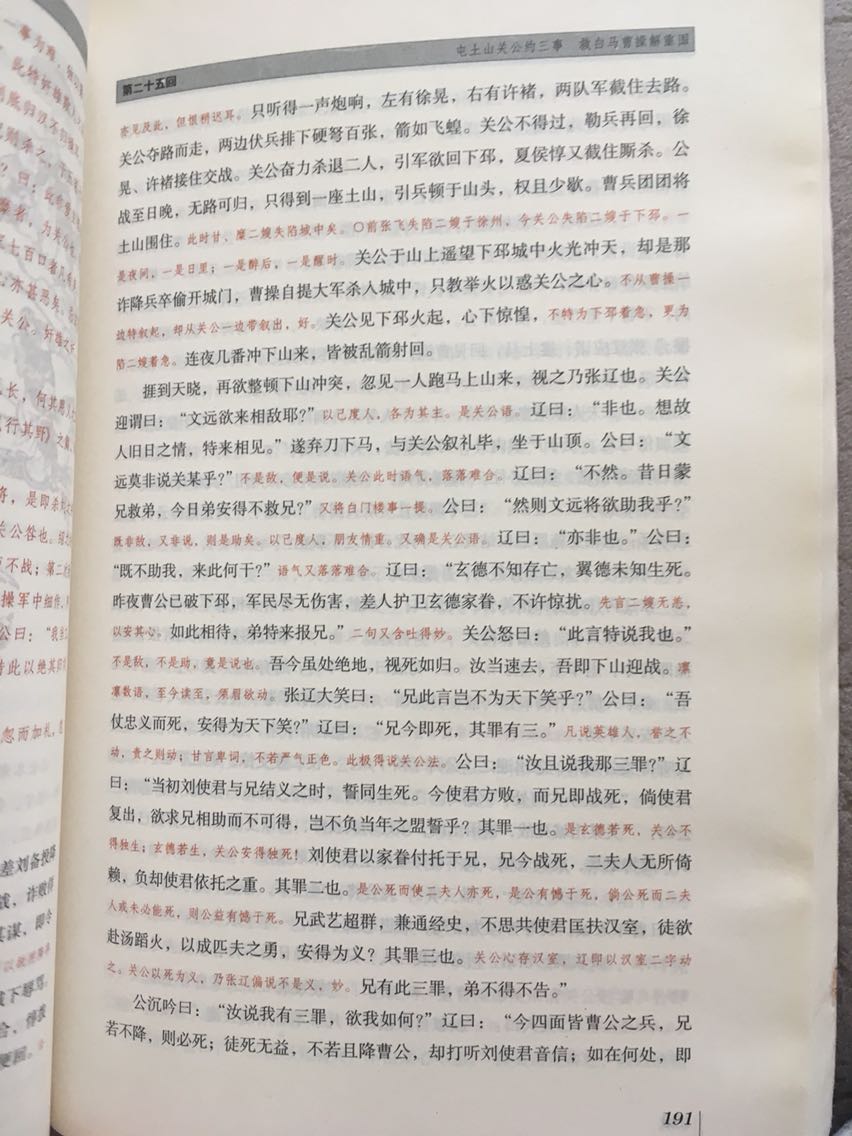 第二十五回
屯土山关公约三事 救白马曹操解重围
亦见及此，但恨稍迟耳。只听得一声炮响，左有徐晃，右有许褚，两队军截住去路。
关公夺路而走，两边伏兵排下硬弩百张，箭如飞蝗。关公不得过，勒兵再回，徐
晃、许褚接住交战。关公奋力杀退二人，引军欲回下邳，夏侯惇又截住厮杀。公
战至日晚，无路可归，只得到一座土山，引兵顿于山头，权且少歇。曹兵团团将
土山围住。此时甘、糜二嫂失陷城中矣。〇前张飞失陷二嫂于徐州，今关公失陷二嫂于下邳。一
是夜间，一是日里；一是醉后，一是醒时。关公于山上遥望下邳城中火光冲天，却是那
诈降兵卒偷开城门，曹操自提大军杀人城中，只教举火以惑关公之心。不从曹操一
边特叙起，却从关公一边带叙出，好。关公见下邳火起，心下惊惶，不特为下邳着急，更为
陷二嫂着急。连夜几番冲下山来，皆被乱箭射回。
捱到天晓，再欲整顿下山冲突，忽见一人跑马上山来，视之乃张辽也。关公
迎谓曰：“文远欲来相敌耶？”以己度人，各为其主。是关公语。辽曰：“非也。想故
人旧日之情，特来相见。”遂弃刀下马，与关公叙礼毕，坐于山顶。公曰：“文
远莫非说关某乎？”不是敌，便是说。关公此时语气，落落难合。辽曰：“不然。昔日蒙
兄救弟，今日弟安得不救兄？”又将白门楼事一提。公曰：“然则文远将欲助我乎？”
既非敌，又非说，则是助矣。以己度人，朋友情重。又确是关公语。辽曰：“亦非也。”公曰：
“既不助我，来此何干？”语气又落落难合。辽曰：“玄德不知存亡，翼德未知生死。
昨夜曹公已破下邳，军民尽无伤害，差人护卫玄德家眷，不许惊扰。先言二嫂无恙，
以安其心。如此相待，弟特来报兄。”二句又含吐得妙。关公怒曰：“此言特说我也。”
不是敌，不是助，竟是说也。吾今虽处绝地，视死如归。汝当速去，吾即下山迎战。凛
凛数语，至今读至，须眉欲动。张辽大笑曰：“兄此言岂不为天下笑乎？”公曰：“吾
仗忠义而死，安得为天下笑？”辽曰：“兄今即死，其罪有三。”凡说英雄人，誉之不
动，责之则动；甘言卑词，不若严气正色。此极得说关公法。公曰：“汝且说我那三罪？”辽
曰：“当初刘使君与兄结义之时，誓同生死。今使君方败，而兄即战死，倘使君
复出，欲求兄相助而不可得，岂不负当年之盟誓乎？其罪一也。是玄德若死，关公不
得独生；玄德若生，关公安得独死！刘使君以家眷付托于兄，兄今战死，二夫人无所倚
赖，负却使君依托之重。其罪二也。是公死而使二夫人亦死，是公有憾于死，倘公死而二夫
人或未必能死，则公益有憾于死。兄武艺超群，兼通经史，不思共使君匡扶汉室，徒欲
赴汤蹈火，以成匹夫之勇，安得为义？其罪三也。关公心存汉室，辽即以汉室二字动
之。关公以死为义，乃张辽偏说不是义，妙。兄有此三罪，弟不得不告。”
公沉吟曰：“汝说我有三罪，欲我如何？”辽曰：“今四面皆曹公之兵，兄
若不降，则必死；徒死无益，不若且降曹公，却打听刘使君音信；如在何处，即
191